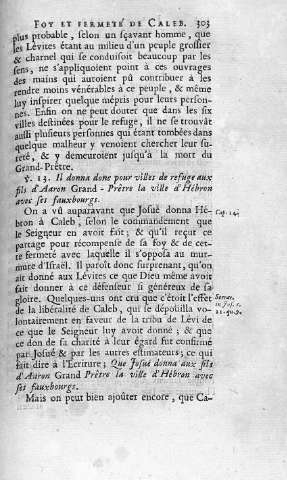 FOY ET FERMETÉ DE CALEB. 303
plus probable, selon un sçavant homme, que
les Lévites étant au milieu d'un peuple grossier
& charnel qui se conduisoit beaucoup par les
sens, ne s'appliquoient point à ces ouvrages
des mains qui autoient pû contribuer à les
rendre moins vénérables à ce peuple, & même
luy inspirer quelque mépris pour leurs person-
nes. Enfin on ne peut douter que dans les six
villes destinées pour le refuge, il ne se trouvât
aussi plusieurs personnes qui étant tombées dans
quelque malheur y venoient chercher leur su-
reté, & y demeuroient jusqu'à la mort du
Grand-Prêtre.
℣. 13. Il donna donc pour villes de refuge aux
fils d'Aaron Grand-Prêtre la ville d'Hébron
avec ses fauxbourgs.
On a vû auparavant que Josué donna Hé-
bron à Caleb, selon le commandement que Cap. 14.
le Seigneur en avoit fait, & qu'il reçut ce
partage pour récompense de sa foy & de cet-
te fermeté avec laquelle il s'opposa au mur-
mure d'Israël. Il paroît donc surprenant, qu'on
ait donné aux Lévites ce que Dieu même avoit
fait donner à ce défenseur si généreux de sa
gloire. Quelques-uns ont cru que c'étoit l'effet
de la libéralité de Caleb, qui se dépoüilla vo-
lontairement en faveur de la tribu de Lévi de
ce que le Seigneur luy avoit donné; & que
ce don de sa charité à leur égard fut confirmé
par Josué & par les autres estimateurs; ce qui
fait dire à l'Ecriture; Que Josué donna aux fils
d'Aaron Grand Prêtre la ville d'Hébron avec
ses fauxbourgs.
Mais on peut bien ajoûter encore, que Ca-